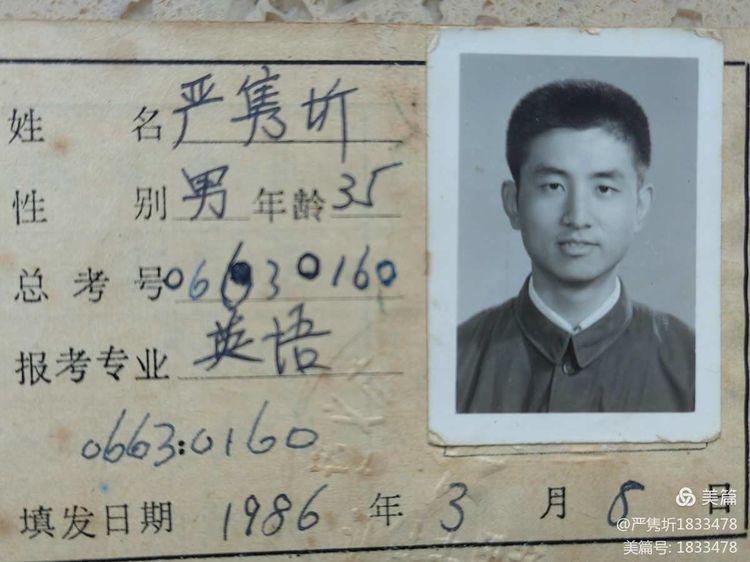 姓 名 严隽圻
性 别 男 年龄 35
总考号 06630160
报考专业 英语
0663:0160
填发日期 1986 年 3 月 8 日
美篇
@严隽圻1833478
美篇号: 1833478